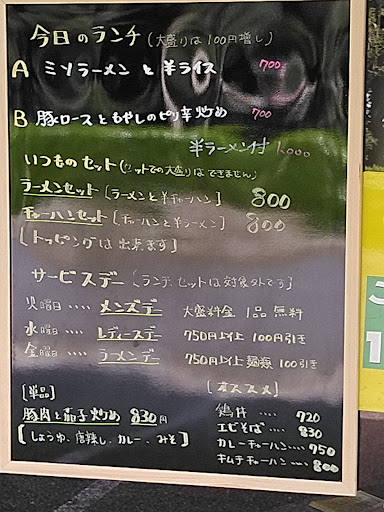 今日のランチ(大盛りは100円増し)
A ミソラーメンと半ライス 700
B 豚ロースともやしのピリ辛炒め 700
半ラーメン付 1,000
いつものセット(セットでの大盛りはできません)
ラーメンセット [ラーメンと半チャーハン] 800
チャーハンセット [チャーハンと半ラーメン] 800
[トッピングは出来ます]
サービスデー [ランチ、セットは対象外です]
火曜日‥‥ メンズデー 大盛料金 1品 無料
水曜日‥‥ レディースデー 750円以上 100円引き
金曜日‥‥ ラーメンデー 750円以上麺類 100引き
[単品]
豚肉と茄子炒め 830円
[しょうゆ、唐辣し、カレー、みそ]
[オススメ]
鶏丼‥‥ 720
エビそば‥‥ 830
カレーチャーハン‥‥ 750
キムチチャーハン‥‥ 800